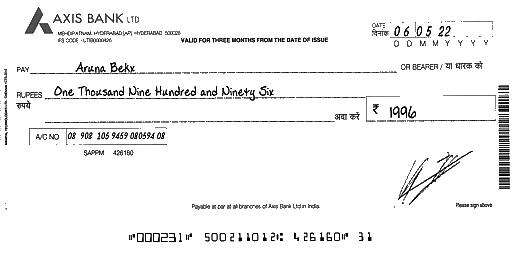 AXIS BANK LTD
MEHDIPATNAM, HYDERABAD [AP] HYDERABAD 500028
IFS CODE - UTIB0000426
VALID FOR THREE MONTHS FROM THE DATE OF ISSUE
DATE
दिनांक
06 05 22
D D M M Y Y Y Y
PAY Aruna Bekx OR BEARER / या धारक को
RUPEES One Thousand Nine Hundred and Ninety Six
रुपये अदा करें ₹ 1996
A/C NO 08 908 105 9459 080594 08
SAPPM 426160
Payable at par at all branches of Axis Bank Ltd in India.
Please sign above
⑈000231⑈ 500211012⑆ 426160⑈ 31